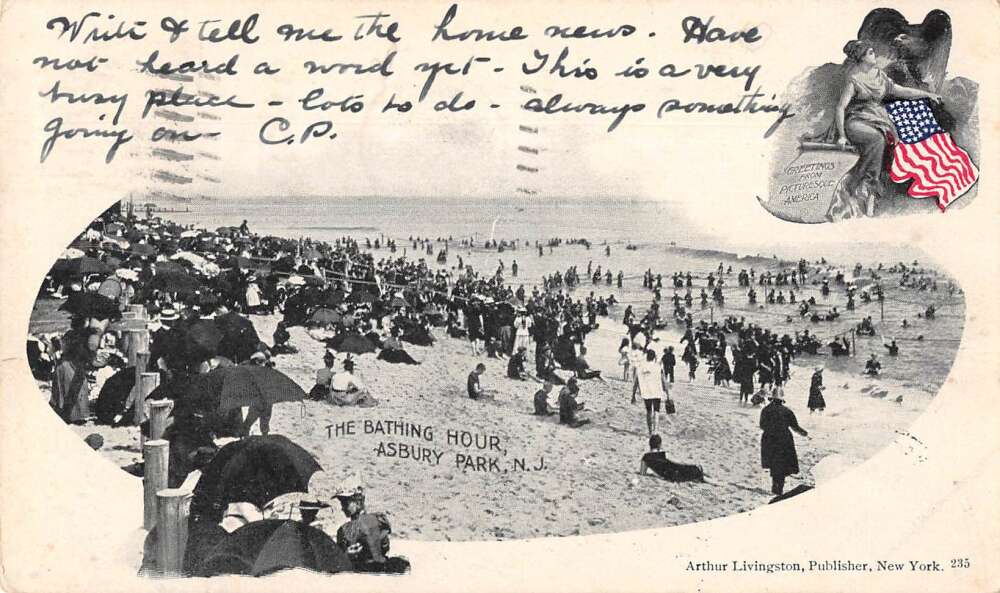 Write & tell me the home news. Have
not heard a word yet - This is a very
busy place - lots to do - always something
going on - C.P.
"GREETINGS
FROM
PICTURESQUE
AMERICA
THE BATHING HOUR,
ASBURY PARK, N.J.
Arthur Livingston, Publisher, New York. 235